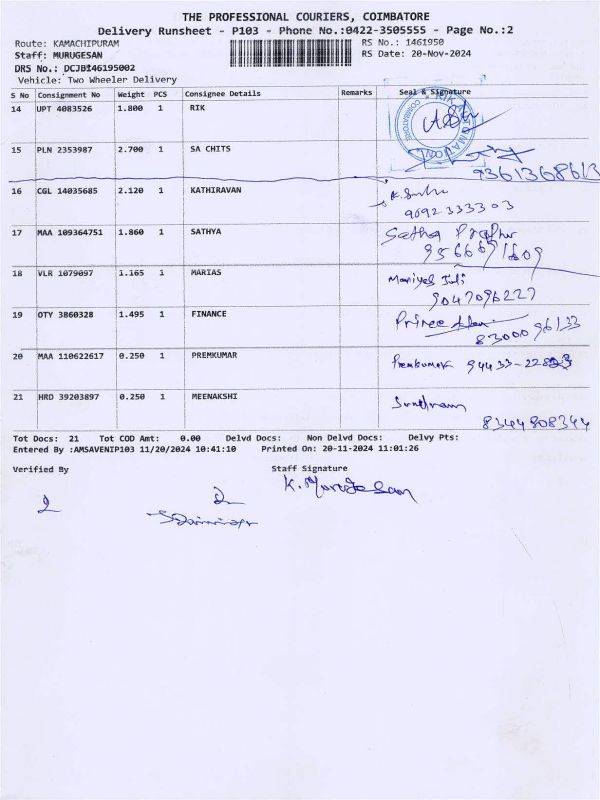 THE PROFESSIONAL COURIERS, COIMBATORE
Delivery Runsheet - P103 - Phone No.:0422-3505555 - Page No.:2
Route: KAMACHIPURAM RS No.: 1461950
Staff: MURUGESAN RS Date: 20-Nov-2024
DRS No.: DCJB146195002
Vehicle: Two Wheeler Delivery
S No Consignment No Weight PCS Consignee Details Remarks Seal & Signature
14 UPT 4083526 1.800 1 RIK
15 PLN 2353987 2.700 1 SA CHITS
16 CGL 14035685 2.120 1 KATHIRAVAN
9092333303
17 MAA 109364751 1.860 1 SATHYA
18 VLR 1079097 1.165 1 MARIAS
9047096227
19 OTY 3860328 1.495 1 FINANCE Prince
8300096133
20 MAA 110622617 0.250 1 PREMKUMAR Premkumar
21 HRD 39203897 0.250 1 MEENAKSHI
8344808344
Tot Docs: 21 Tot COD Amt: 0.00 Delvd Docs: Non Delvd Docs: Delvy Pts:
Entered By :AMSAVENIP103 11/20/2024 10:41:10 Printed On: 20-11-2024 11:01:26
Verified By Staff Signature
K. Murugesan